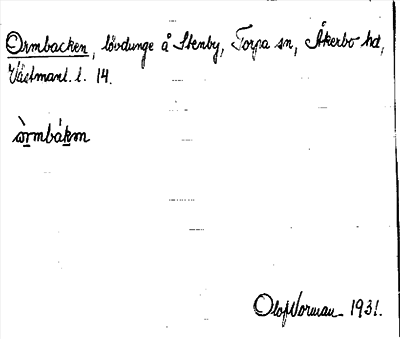 Ormbacken, lövdunge å Stenby, Torpa sn, Åkerbo hd,
Västmanl. l. 14.
òrmbákən
Olof Norman 1931.